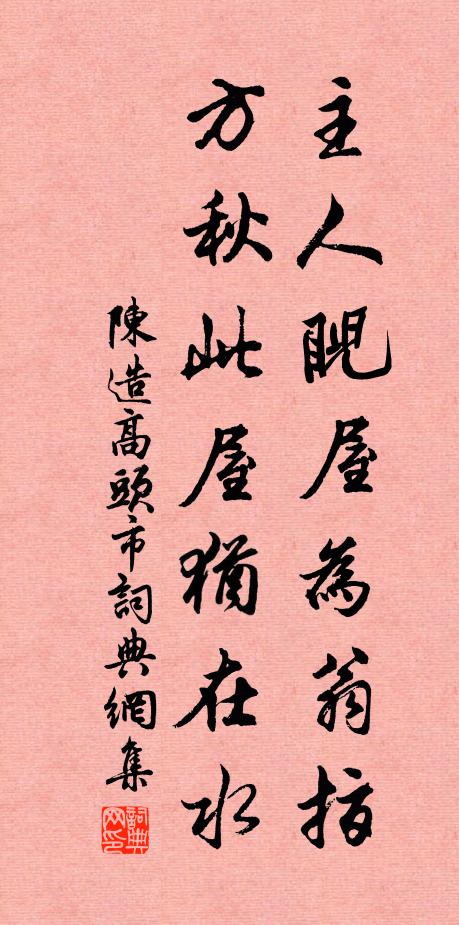 主人睨屋為翁指
方秋此屋猶在水
陳造高頭市詞典網集
詞典网印